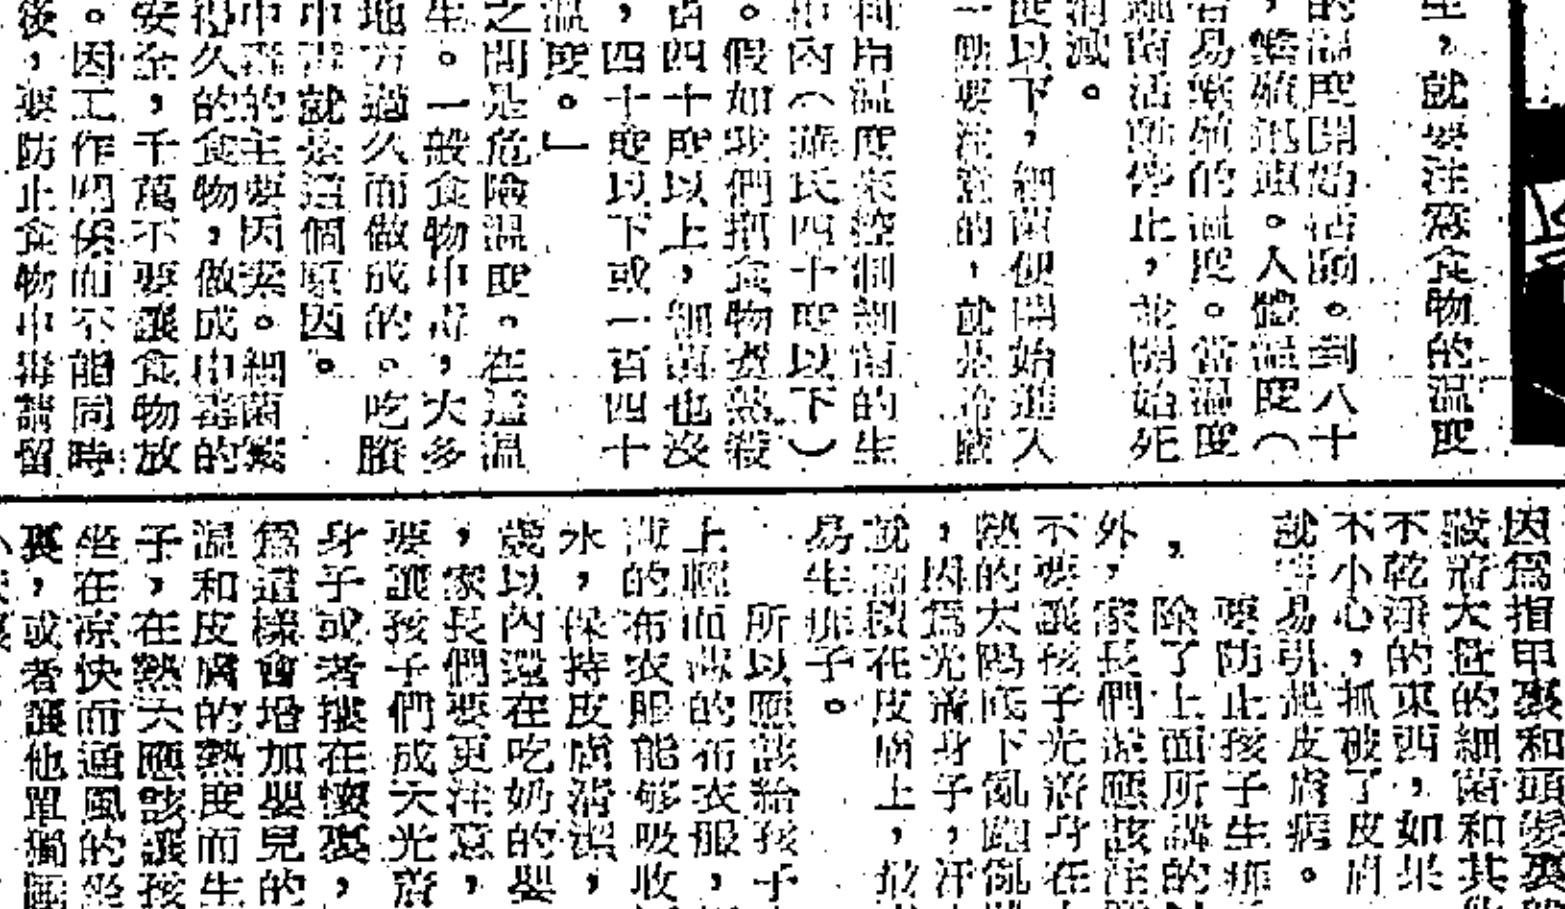 生，就要注意食物的溫度
的溫度開始活動。到八十
，繁殖迅速。人體溫度（
容易繁殖的溫度。當溫度
細菌活動停止，並開始死
消滅。
度以下，細菌便開始進入
一點要注意的，就是冷藏
利用溫度來控制細菌的生
柜內（華氏四十度以下）
。假如我們把食物煮熟殺
百四十度以上，細菌也沒
，四十度以下或一百四十
溫度。」
之間是危險溫度。在這溫
生。一般食物中毒，大多
地方過久而做成的。吃臘
中毒就是這個原因。
中毒的主要因素。細菌繁
得久的食物，做成中毒的
安全，千萬不要讓食物放
。因工作關係而不能同時
後，要防止食物中毒請留
因為指甲裏和頭髮裏
藏將大批的細菌和其他
不乾淨的東西，如果
不小心，抓破了皮膚
就容易引起皮膚病。
要防止孩子生痱
，除了上面所講的
外，家長們還應該注
不要讓孩子光着身在
熱的太陽底下亂跑亂
，因為光着身子，汗
就留在皮膚上，最
易生痱子。
所以應該給孩子
上輕而薄的布衣服，
薄的布衣服能够吸收
水，保持皮膚清潔，
歲以內還在吃奶的嬰
，家長們要更注意，
要讓孩子們成天光着
身子或者摟在懷裏，
為這樣會增加嬰兒的
溫和皮膚的熱度而生
子，在熱天應該讓孩
坐在凉快而通風的坐
裏，或者讓他單獨睡